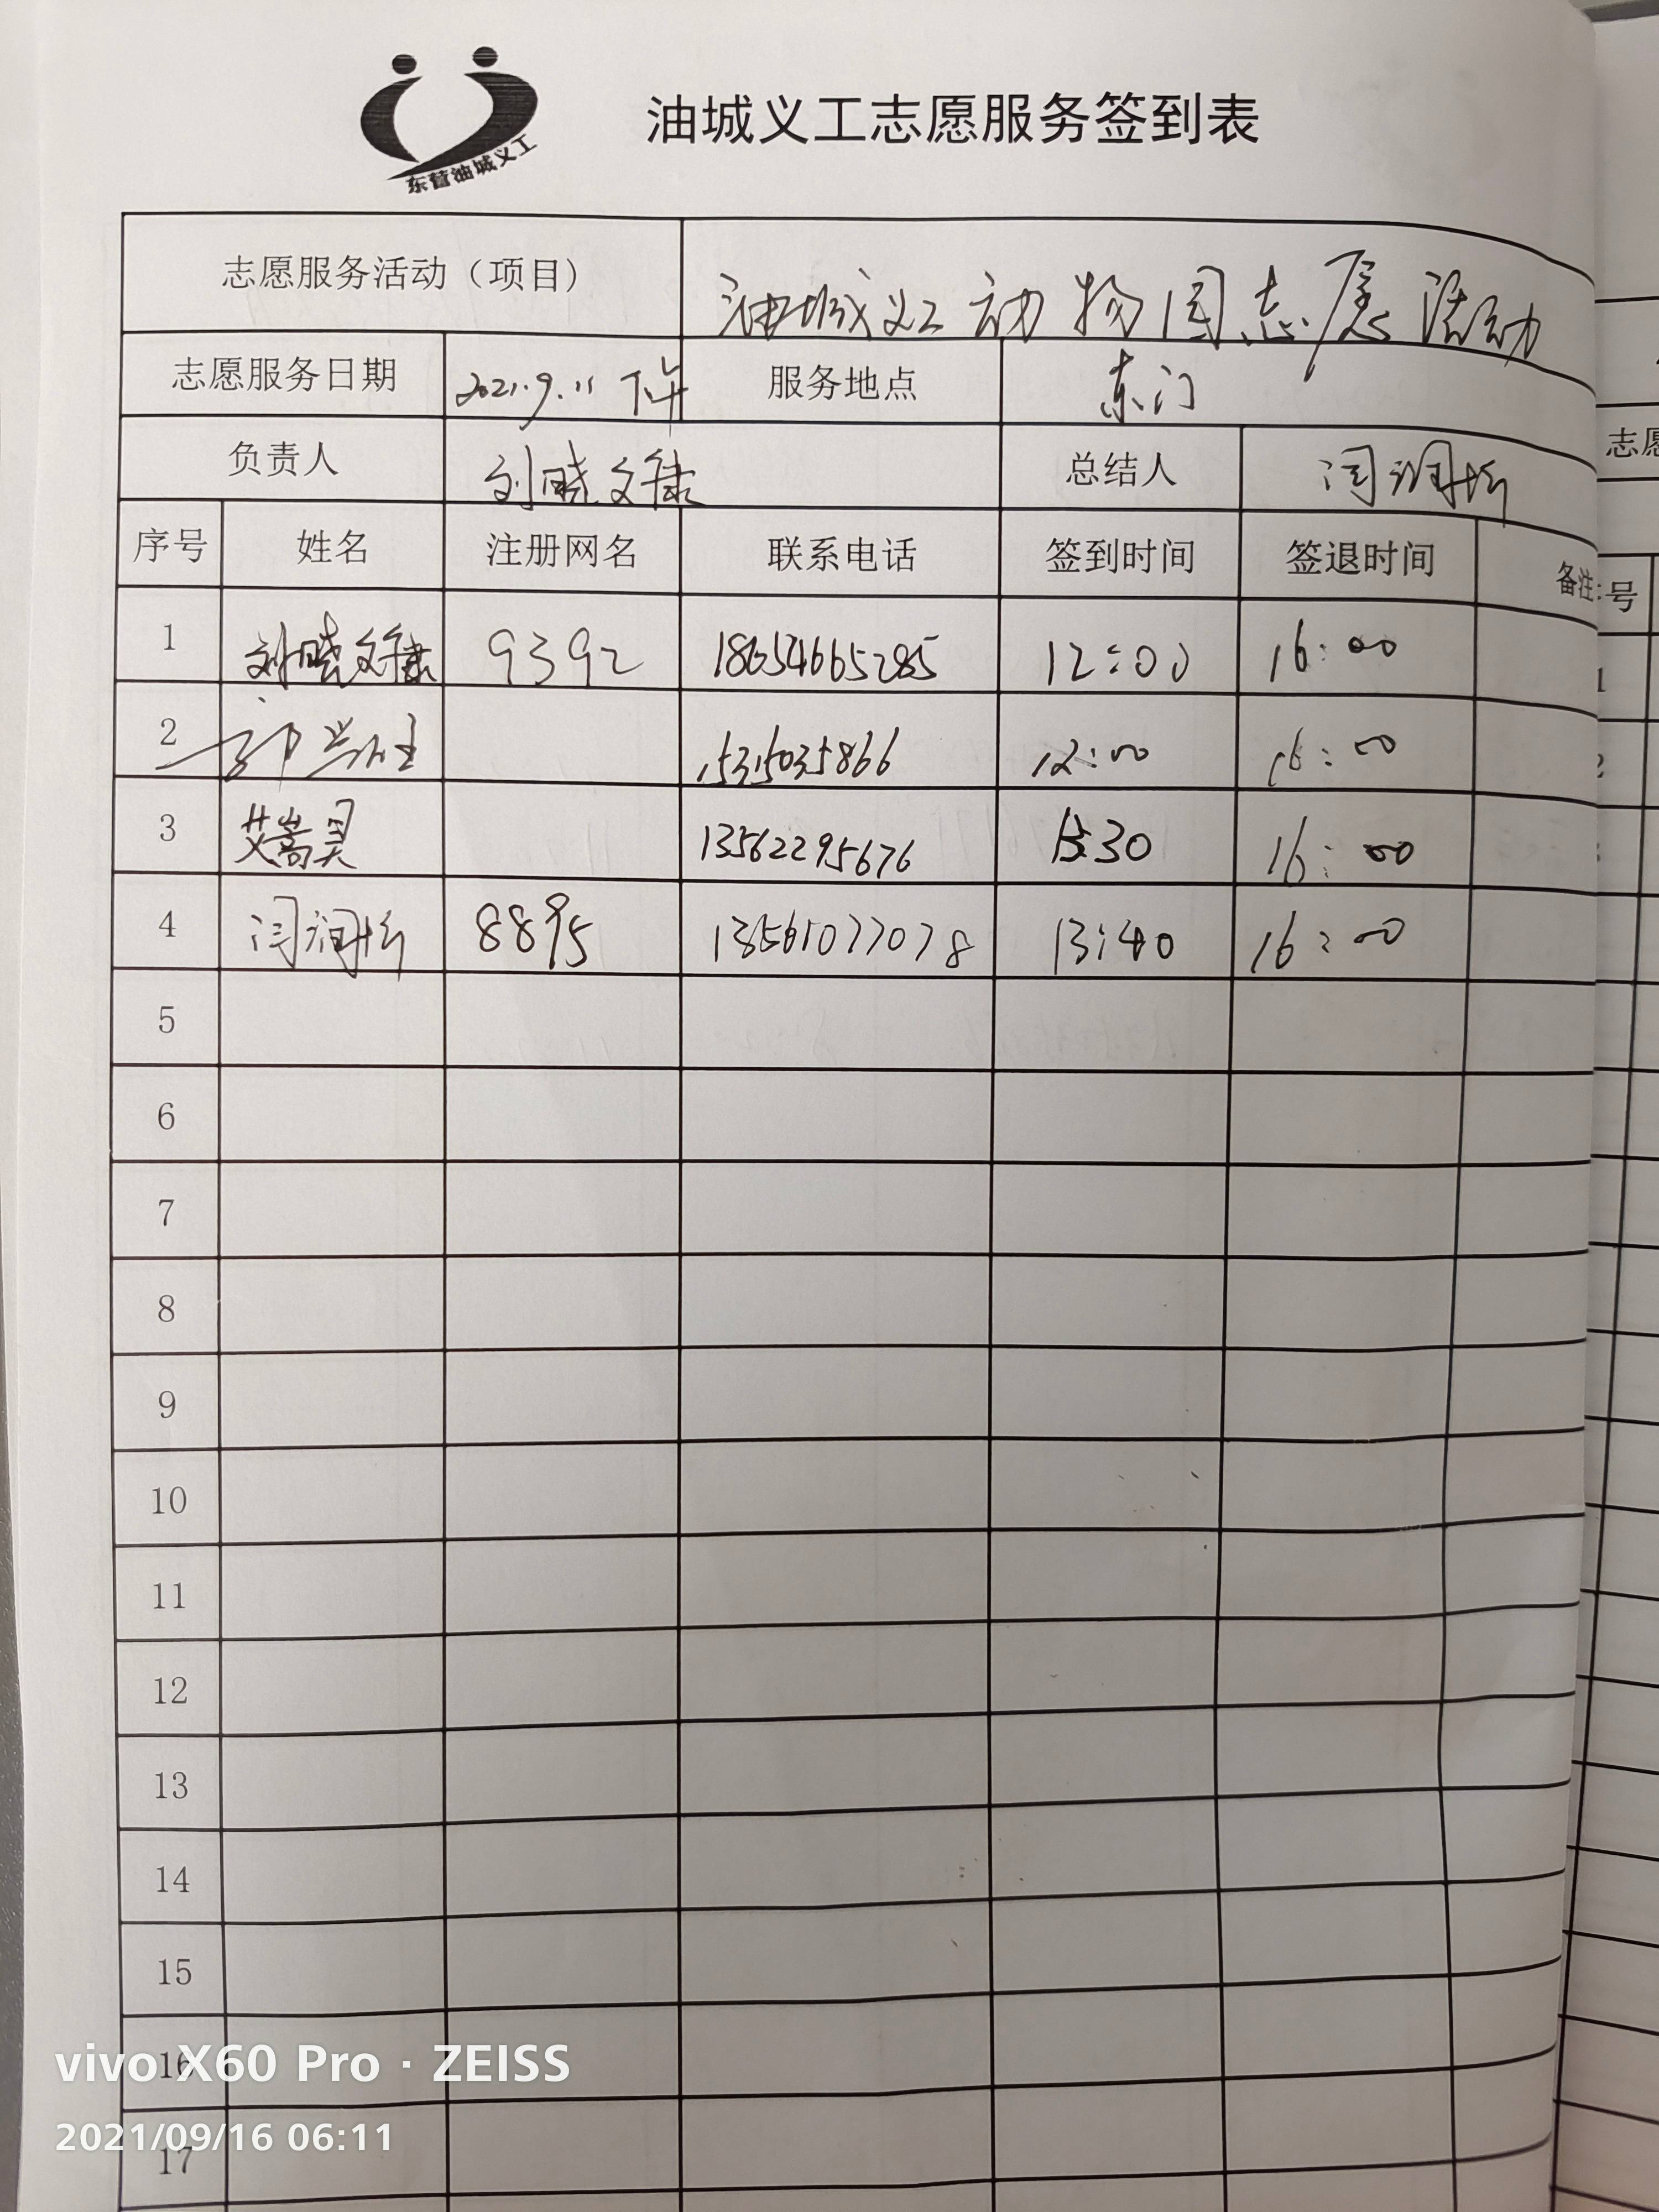 东营油城义工
油城义工志愿服务签到表
志愿服务活动（项目） 油城义工动物园志愿活动
志愿服务日期 2021.9.11 下午 服务地点 东门
负责人 刘晓文 总结人 闫润
序号 姓名 注册网名 联系电话 签到时间 签退时间 备注
1 刘晓文 9392 18654665285 12:00 16:00
2 15315035866 12:00 16:00
3 艾嵩昊 13562295676 13:30 16:00
4 闫润 8895 13561077078 13:40 16:00
5
6
7
8
9
10
11
12
13
14
15
16
17
志愿
号
1
2
vivo X60 Pro · ZEISS
2021/09/16 06:11